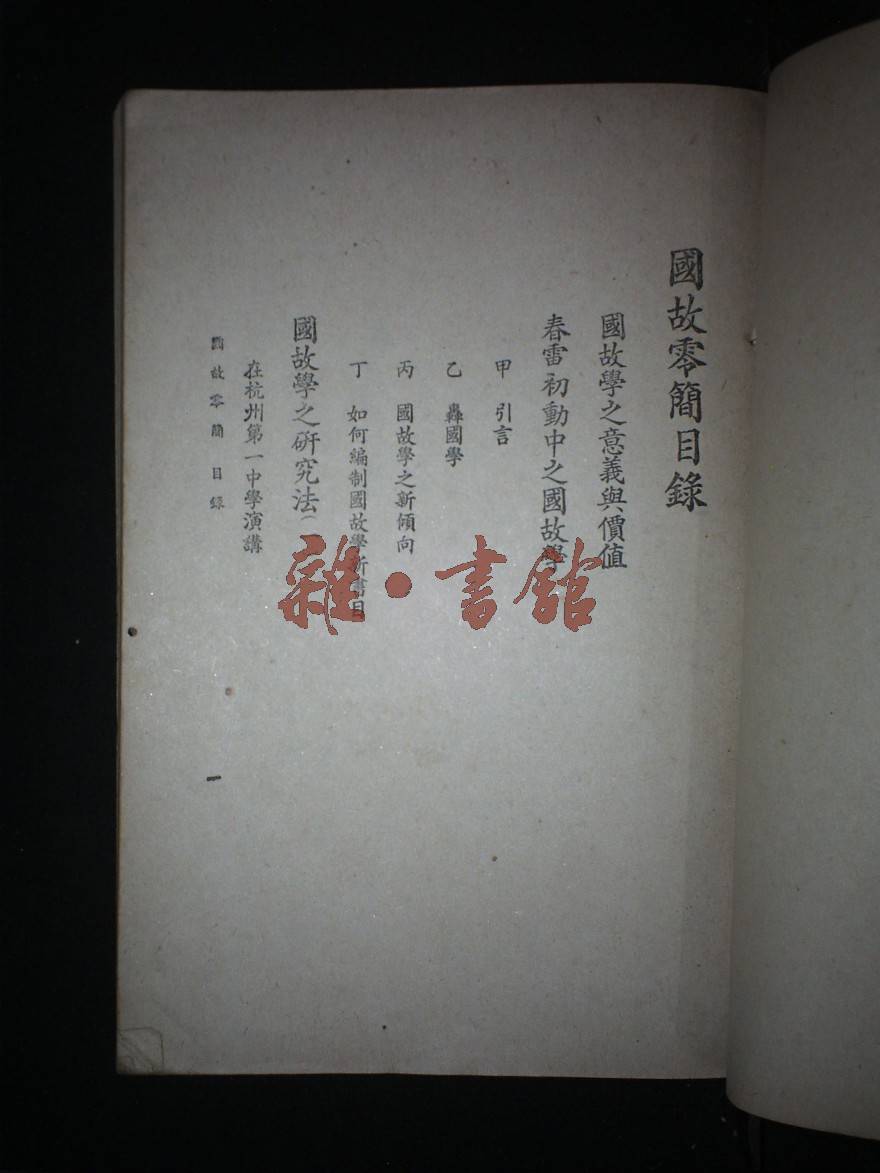 國故零簡目錄
國故學之意義與價值
春雷初動中之國故學
甲 引言
乙 轟國學
丙 國故學之新傾向
丁 如何編制國故學新書目
國故學之研究法(
在杭州第一中學演講
國故零簡 目錄
一
雜·書館